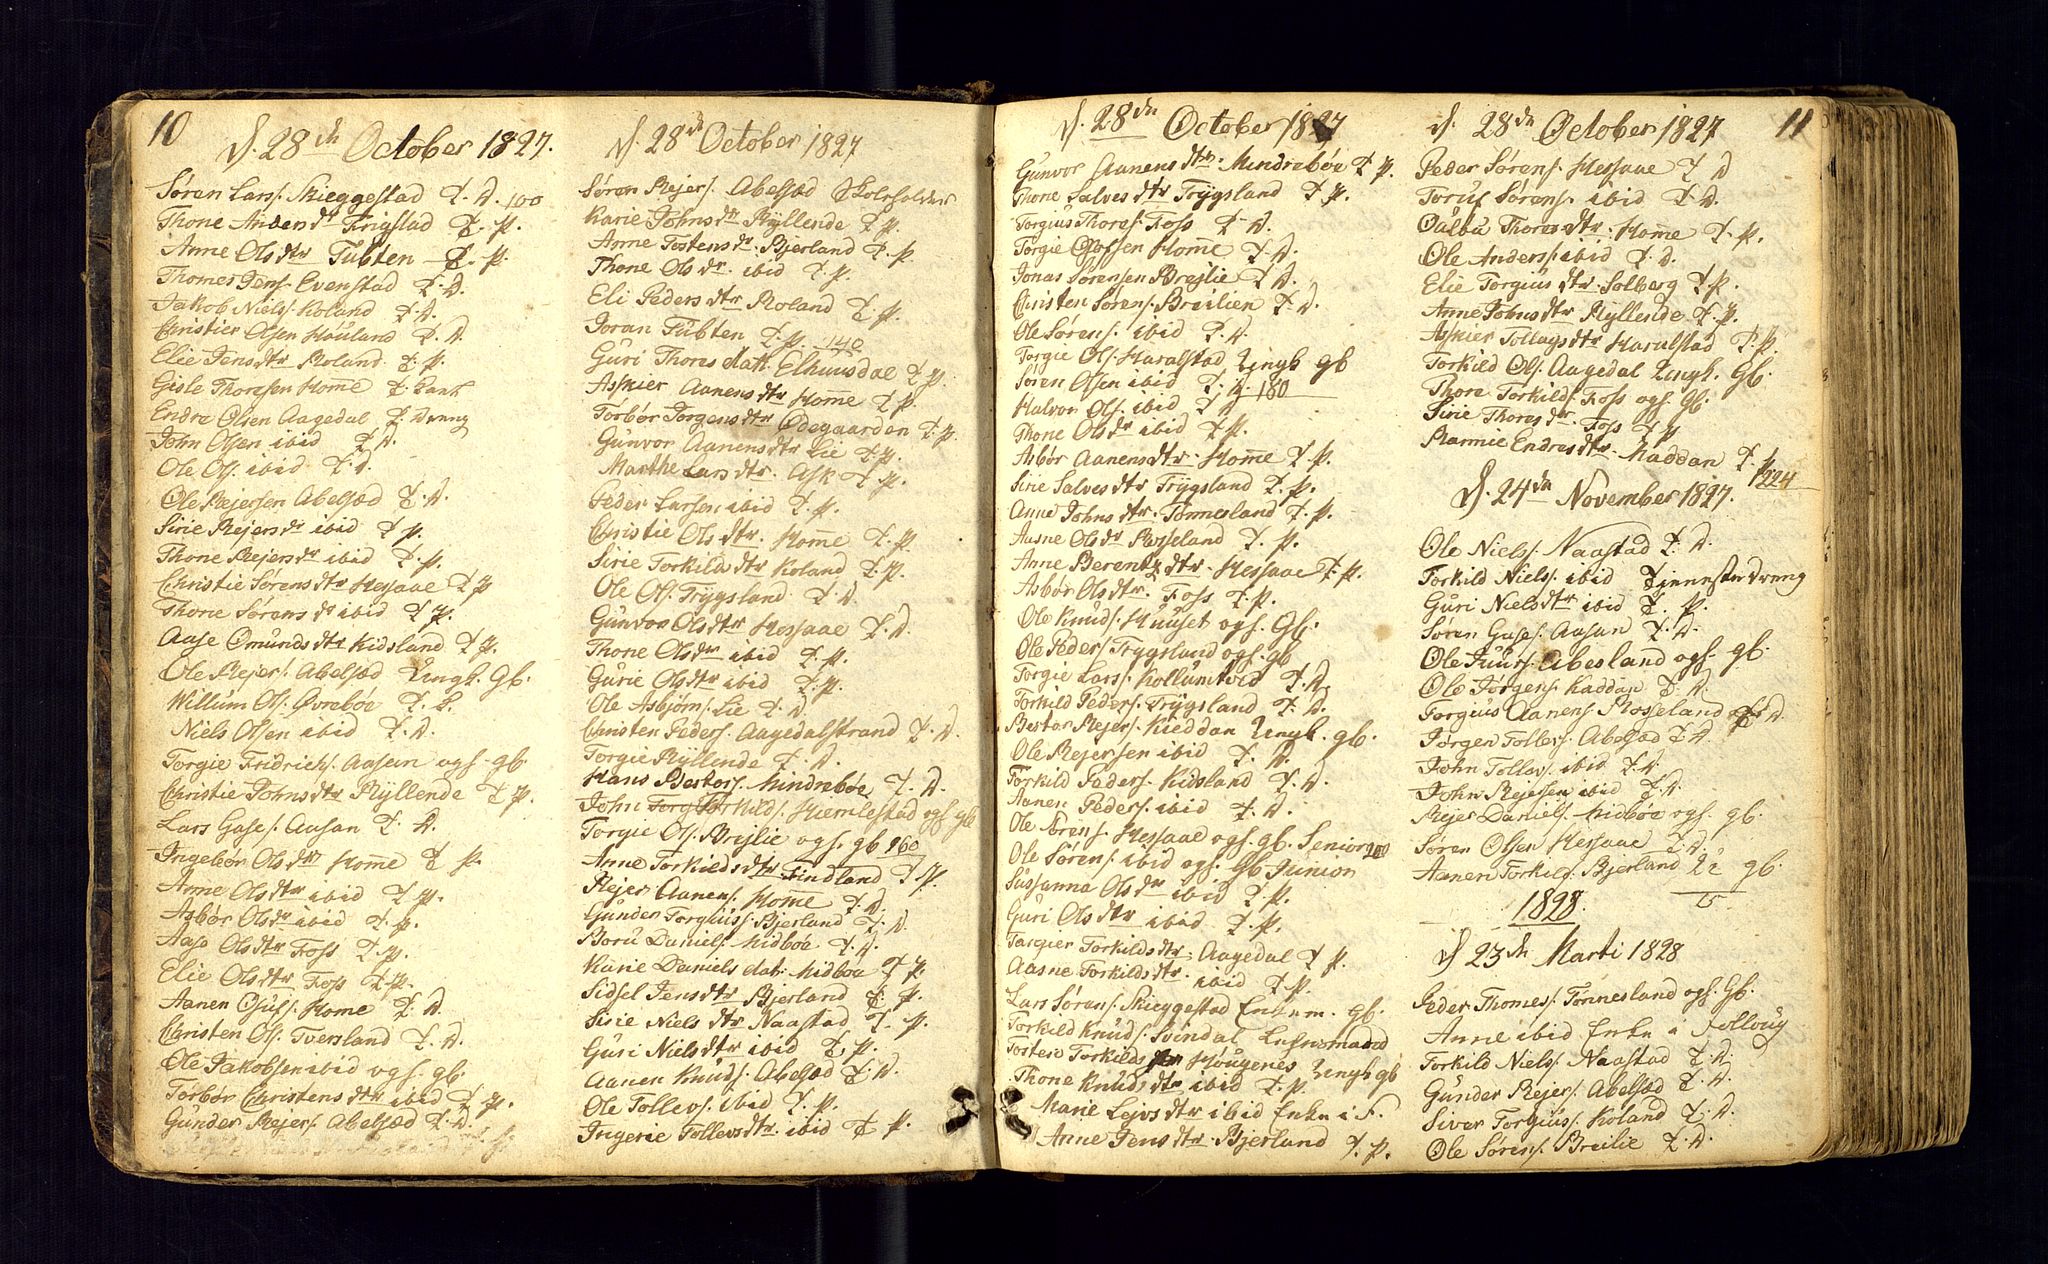 10
d. 28de October 1827.
Søren Lars. Skieggestad T. D. 100
Thone Andersdt Frigstad T. P.
Anne Olsdtr Tubten T. P.
Thomes Jens. Evenstad T. D.
Jakob Niels. Koland T. D.
Christen Olsen Houland T. D.
Elie Jensdtr Roland T. P.
Gisle Thoresen Home T.
Endre Olsen Aagedal T. Dreng
John Olsen ibid T. D.
Ole Ols. ibid T. D.
Ole Rejersen Abelsæd T. D.
Sirie Rejersdr ibid T. P.
Thone Rejersdr ibid T. P.
Christie Sørensdtr Hessaae T P
Thone Sørensdr ibid T. P.
Aase Omundsdtr Kidsland T P.
Ole Rejers. Abelsæd Ungk. Gb.
Willum Ols. Øvrebøe T. D.
Niels Olsen ibid T. D.
Torgie Fridrichs. Aasen ogs. gb
Christie Johnsdtr Ryllende T P.
Lars Gases. Aasan T. D.
Ingebør Olsdtr Home T P.
Anne Olsdtr ibid T. P.
Asbør Olsdr ibid T. P.
Aase Olsdtr Foss T. P.
Elie Olsdtr Foss T. P.
Aanen Osufs. Home T. D.
Christen Ols. Tversland T. D.
Ole Jakobsen ibid ogs. gb.
Torbør Christensdtr ibid T. P.
Gunder Rejers. Abelsæd T. D.
d. 28de October 1827
Søren Rejers. Abelsæd Skoleholder
Karie Johnsdtr Ryllende T P.
Anne Tostensdr. Bjerland T. P
Thone Olsdr. ibid T. P.
Eli Pedersdtr Roland T P.
Joran Tubten T. P. 140
Guri Thoresdatt. Elhuusdal T P.
Askier Aanensdtr Home T P.
Torbør Jørgensdtr Ødegaarden T. P.
Gunvor Aanensdtr Lie T. P.
Marthe Larsdtr. Ask T P.
Peder Larsen ibid T. P.
Christie Olsdtr. Home T. P.
Sirie Torkildsdtr Koland T. P.
Ole Ols. Trygsland T. D.
Gunvor Olsdtr Hessaae T. D.
Thone Olsdtr ibid T. P.
Gurie Olsdtr ibid T. P.
Ole Asbjørns. Lie T. D.
Christen Peders. Aagedalstrand T. D.
Torgie Ryllende T. D.
Hans Bestors. Mindrebøe T. D.
John Torkilds. Hemlestad ogs gb
Torgie Ols. Brejlie ogs. gb 160
Anne Torkildsdtr Findland T P.
Rejer Aanens. Home T. D.
Gunder Torgiuss. Bjerland T. D.
Boru Daniels. Midbøe T. D.
Karie Danielsdat. Midbøe T P.
Sidsel Jensdtr Bjerland T. P.
Sirie Nielsdtr Naastad T. P.
Guri Nielsdtr ibid T P.
Aanen Knuds. Abelsæd T. D.
Ole Tollevs. ibid T. P.
Ingerie Tollevsdtr. ibid T P.
d. 28de October 1827
Gunvor Aanensdtr. Mindrebøe T P.
Thone Salvesdtr Trygsland T P.
Torgius Thores. Foss T. D.
Torgie Olofsen Home T. D.
Jonas Sørensen Brejlie T. D.
Christen Sørens. Breilien T. D.
Ole Sørens. ibid T. D.
Torgie Ols. Haralstad Ungk gb
Søren Olsen ibid T. D. 180
Halvor Ols. ibid T D
Thone Olsdr ibid T P.
Asbør Aanensdtr. Home T. P.
Sirie Salvesdtr Trygsland T. P.
Anne Johnsdtr. Tønnesland T. P.
Aasne Olsdr Rosseland T. P.
Anne Berentzdtr. Hessaae T. P.
Asbør Olsdtr. Foss T. P.
Ole Knuds. Huuset ogs. Gb.
Ole Peders Trygsland ogs. gb
Torgie Lars. Kollumtved T. D.
Torkild Peders. Trygsland T. D.
Bestor Rejers. Kieddan Ungk. gb.
Ole Rejersen ibid T. D.
Torkild Peders. Kidsland T. D.
Aanen Peders. ibid T. D.
Ole Sørens. Hessaae ogs. gb. Senior 200
Ole Sørens. ibid ogs. Gb Junior
Sussanna Olsdr ibid T. P.
Guri Olsdtr ibid T. P.
Targier Torkildsdtr. Aagedal T P.
Aasne Torkildsdtr. ibid T. P.
Lars Sørens. Skieggestad Enkem. Gb.
Torkild Knuds. Svindal
Tosten Torkilds Hougenes Ungk gb
Thone Knudsdtr ibid T. P.
Marie Lejvsdtr ibid Enke i F.
Anne Jensdtr. Bjerland T. P.
11
d. 28de October 1827
Peder Sørens. Hessaae T D
Toruf Sørens. ibid T. D.
Oulbu Thoresdtr. Home T. P.
Ole Anders. ibid T. D.
Elie Torgiusdtr. Solberg T. P.
Anne Johnsdtr Ryllende T. P.
Askier Tollagsdtr Haralstad T. P.
Torkild Ols. Aagedal Ungk. Gb.
Thore Torkilds. Foss ogs. Gb.
Sirie Thoresdr. Foss T P
Marnie Endresdtr. Haddan T. P. 224
d. 24de November 1827.
Ole Niels. Naastad T. D.
Torkild Niels. ibid Tjenneste Dreng
Guri Nielsdtr ibid T. P.
Søren Gases. Aasan T. D.
Ole Juurs. Abesland ogs. gb.
Ole Jørgens. Kaddan T. D.
Torgius Aanens. Rosseland T D.
Jørgen Tollevs. Abelsæd T. D.
John Tollevs. ibid T. D.
John Rejersen ibid T. D.
Rejer Daniels. Midbøe ogs. gb.
Søren Olsen Hessaae T. D.
Aanen Torkilds. Bjerland gb.
1828.
d 23de Marti 1828
Peder Thomes. Tønnesland ogs. Gb.
Anne ibid Enke i Folloug
Torkild Niels. Naastad T. D.
Gunder Rejers. Abelsæd T. D.
Siver Torgius. Koland T. D.
Ole Sørens. Breilie T. D.